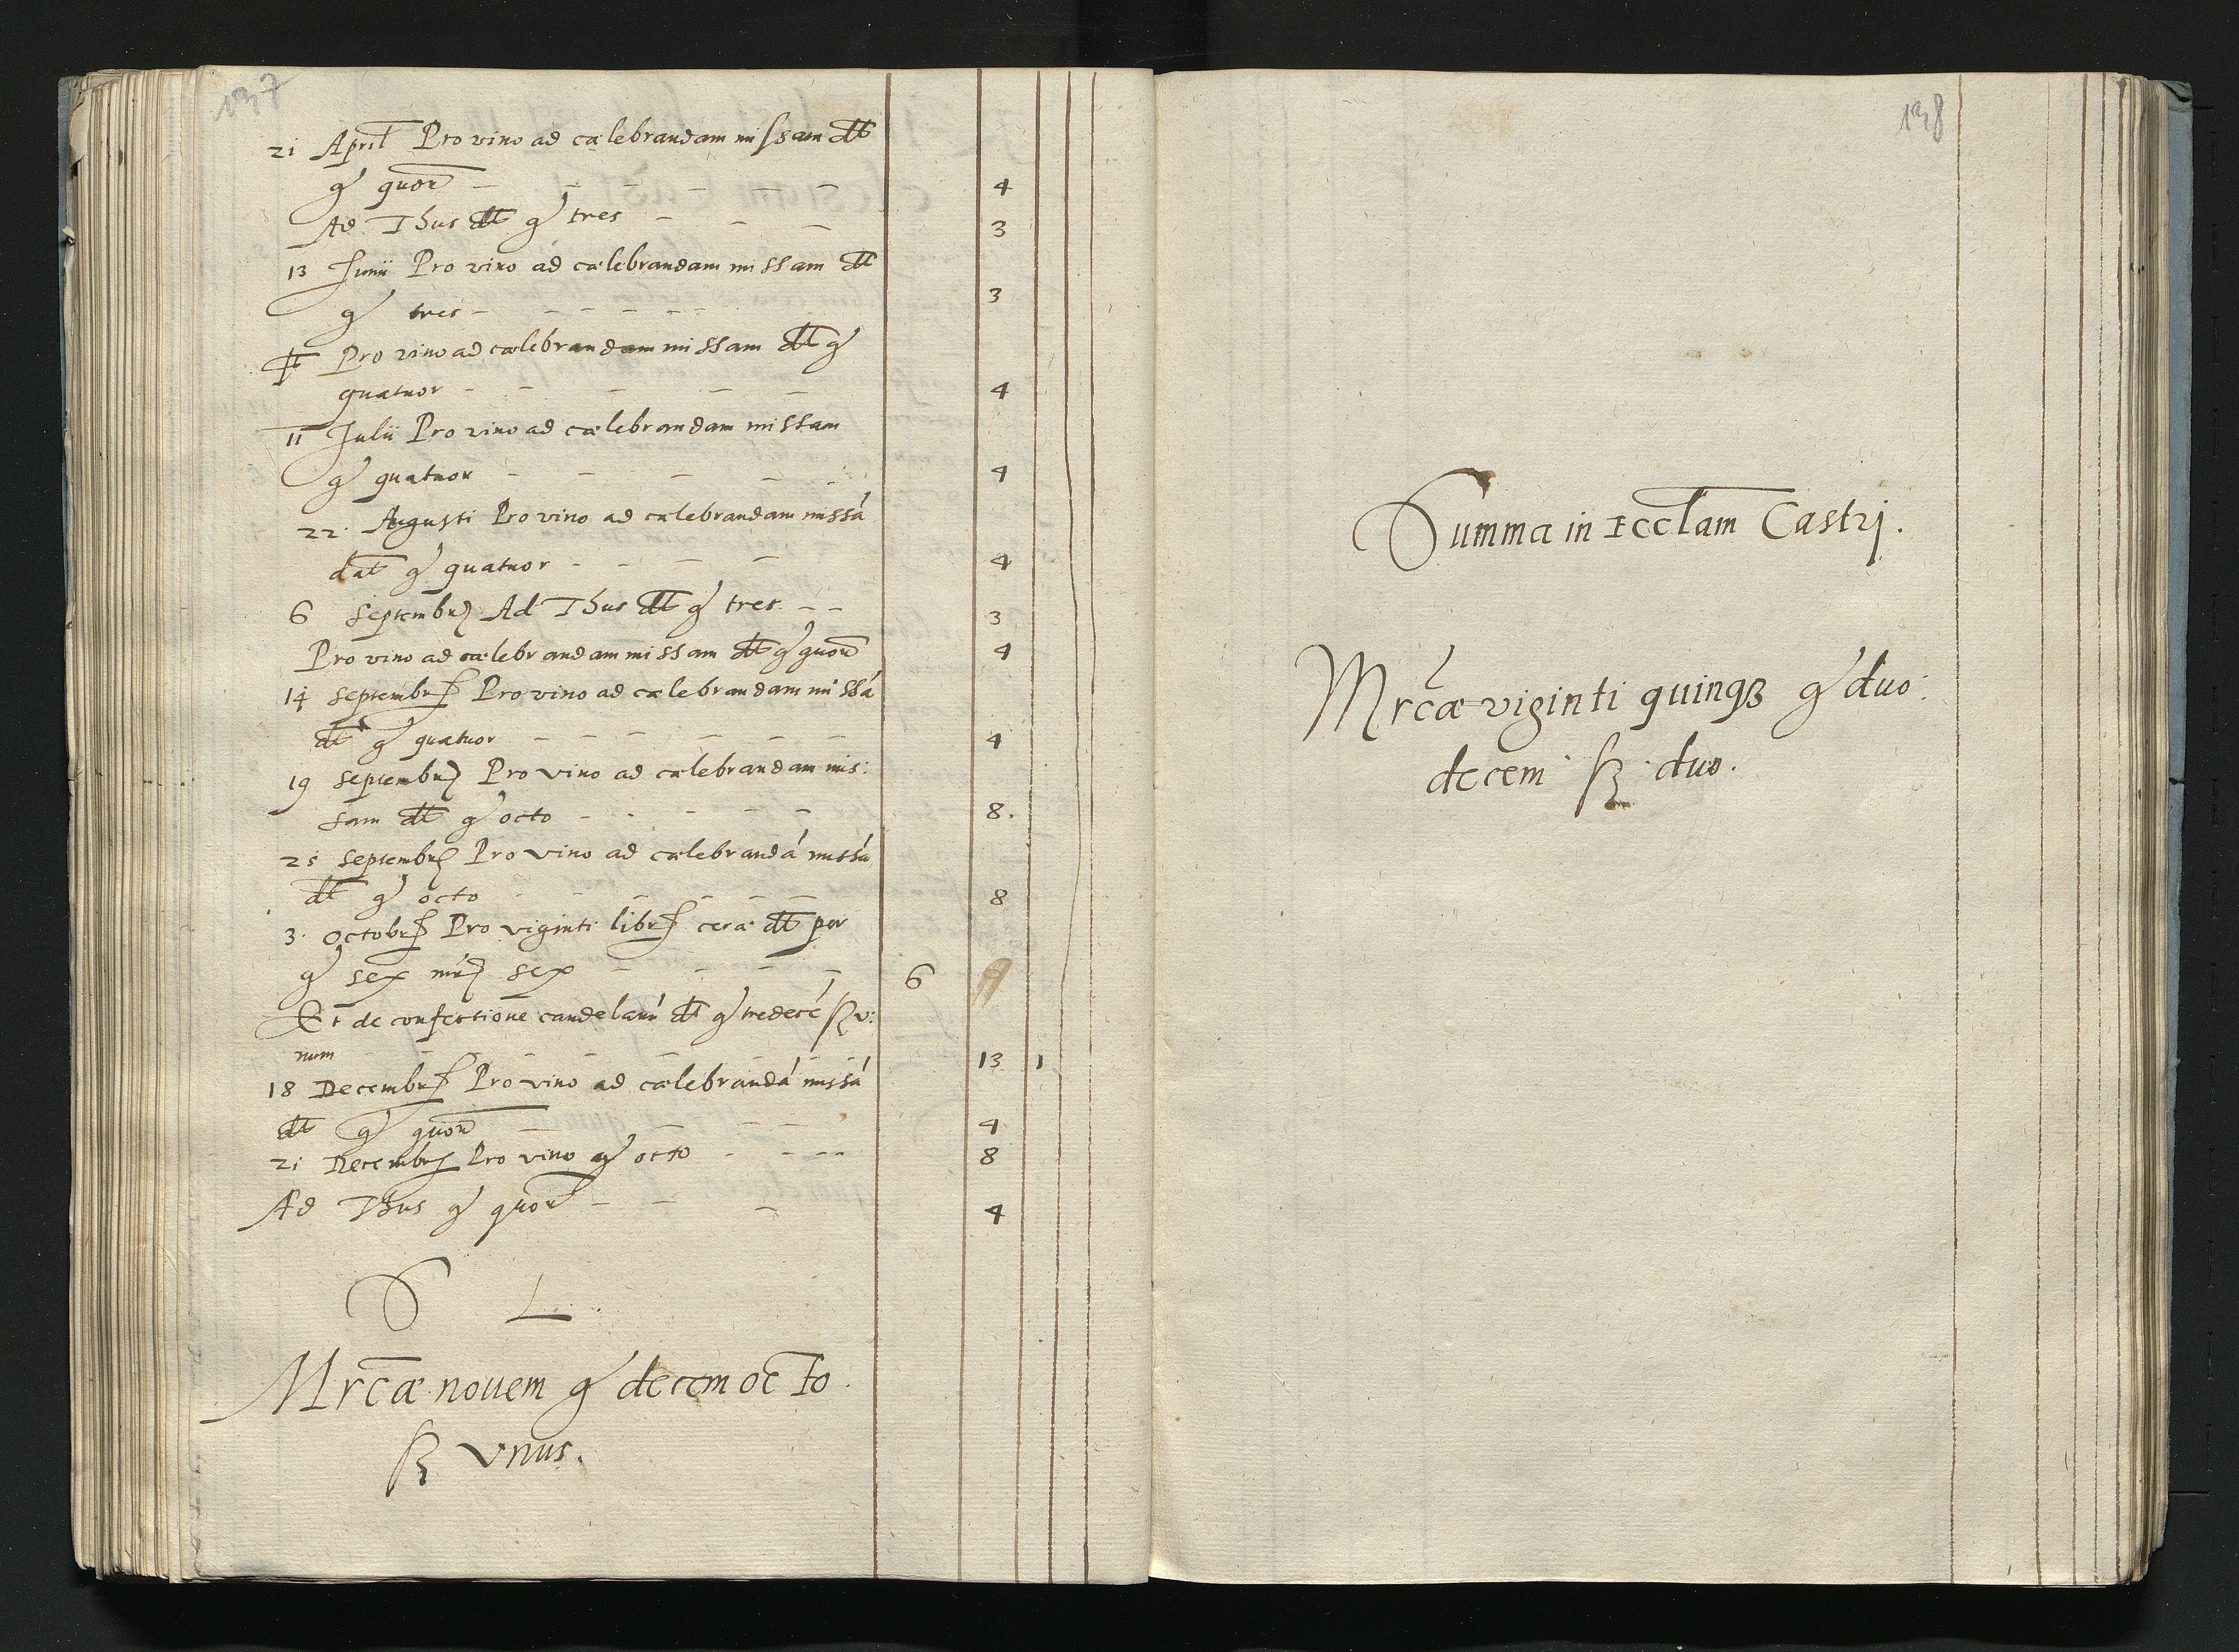 137
21 April Pro vino ad cælebrandam missam dt
g quor - - - - - - 4
Ad Thus dt g tres - - - 3
13 Junii Pro vino ad cælebrandam missam dt
g tres - - - - - - 3
It Pro vino ad cælebrandam missam dt g
quatuor - - - - - 4
11 Julii Pro vino ad cælebrandam missam
g quatuor - - - - - 4
22 Augusti Pro vino ad cælebrandam missá
dat g quatuor - - - - 4
6 Septembr Ad Thus dt g tres - - 3
Pro vino ad cælebrandam missam dt g quor 4
14 Septembr Pro vino ad cælebrandam missá
dt g quatuor - - - - - - 4
19 Septembr Pro vino ad cælebrandam mis:
sam dt g octo - - - - - 8.
25 Septembr Pro vino ad cælebrandá missá
dt g octo - - - - - 8
3 Octobr Pro viginti libr ceræ dt per
g sex mr sex - - - - 6
Et de confectione candelarú dt g tredecé ß v:
num - - - - - - - 13 1
18 Decembr Pro vino ad cælebrandá missá
dt g quor - - - - 4
21 Decembr Pro vino g octo - - - - 8
Ad Thus g quor - - - 4
S L
Mrcæ nouem g decem octo
ß vnus.
138
Summa in Ecclam Castri.
Mrcæ viginti quinqȝ g duo:
decem ß duo.